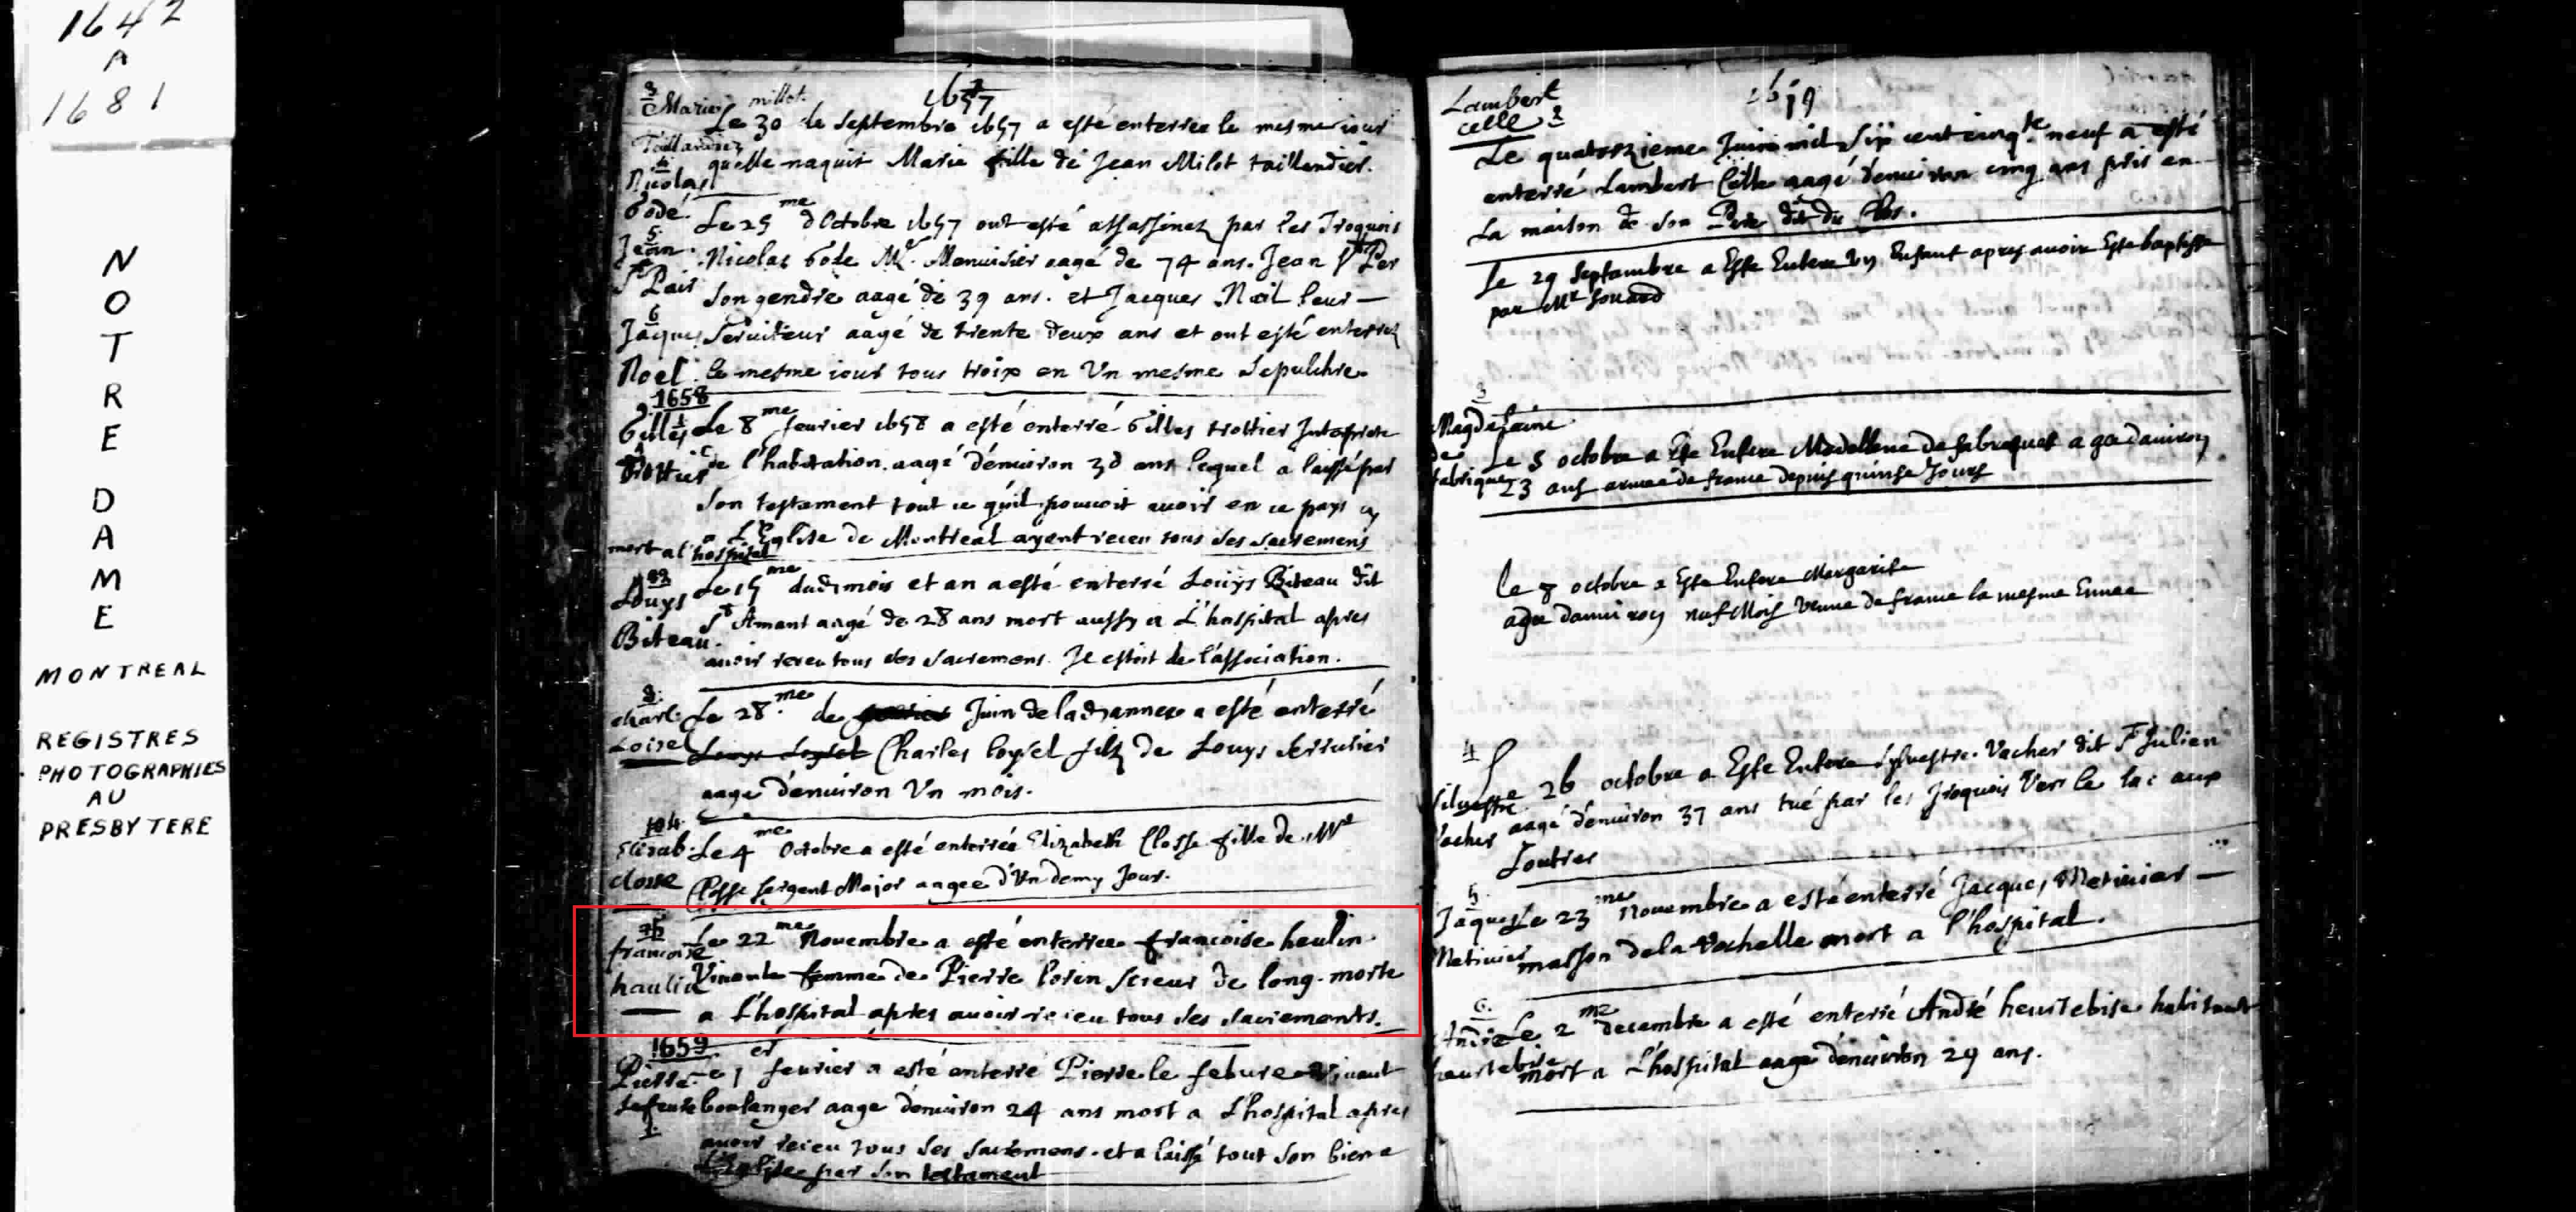 1642
A
1681
NOTRE DAME
MONTREAL
REGISTRES
PHOTOGRAPHIES
AU
PRESBYTERE
1657
3
Marie millot
Taillandier
Le 30 de Septembre 1657 a esté enterrée le mesme iour
quelle naquit Marie fille de Jean Milot taillandier.
4
Nicolas
Godé
5
Jean
St Pair
6
Jaques
Noel
Le 25me d'Octobre 1657 ont esté assassinez par les Iroquois
Nicolas Gode Mr. Menuisier aagé de 74 ans. Jean St Per
Son gendre aagé de 39 ans. et Jacques Noil leur
Seruiteur aagé de trente deux ans et ont esté enterrez
le mesme iour tous troix en Vn mesme Sepulchre
1658
1
Gilles
Trottier
Le 8me feurier 1658 a esté enterré Gilles trottier
de l'habitation aagé d'enuiron ans lequel a laissé par
Son testament tout ce qu'il pouuoit auoir en ce pays
a L'Eglise de Montreal ayant receu tous Ses Sacremens
mort a l'hospital
2
Louys
Biteau
Le 15me dud. mois et an a esté enterré Louys Biteau dit
St Amant aagé de 28 ans mort aussy a L'hospital apres
auoir receu tous Ses Sacremens. Il estoit de l'association.
3
charl.
Loisel
Le 28me de Juin de lad. annee a esté enterré
Louys Loysel Charles loysel filz de Louys Serrurier
aage d'enuiron Vn mois.
4
Elizab.
closse
Le 4me Octobre a esté enterrée Elizabeth Closse fille de Mr
Closse Sergent Major aagee d'Vn demy Jour.
5
francoise
haulin
Le 22me Nouembre a esté enterree francoise heulin
Viuante femme de Pierre lorin Scieur de long morte
a L'hospital apres auoir receu tous Ses Sacrements.
1659
Pierre
Lefeure
1
Le 1er feurier a esté enterré Pierre le febure Viuant
boulanger aagé d'enuiron 24 ans mort a L'hospital apres
auoir receu tous Ses Sacremens. et a laissé tout Son bien a
L'Eglise par Son testament
1659
Lambert
celle 2
Le quatorzieme Juin mil Six cent cinqte neuf a esté
enterré Lambert Celle aagé d'enuiron cinq ans pris en
La maison de Son Pere dit du Clos.
le 29 Septambre a Este Entere Vn Enfant apres auoir Este baptisse
par Mr Souard
3
Magdelaine
de
fabrique
Le 5 octobre a Este Entere Madellene de fabrequet a ge danuiron
23 ans arriuee de france depuis quinse Jours
le 8 octobre a Este Entere Margarite
agee danuiron neuf Mois Venue de france la mesme Ennee
4
Siluestre
Vacher
Le 26 octobre a Este Entere Syluestre Vacher dit St Julien
aagé d'enuiron 37 ans tué par les Iroquois Vers le lac aux
Loutres
5
Jaques
Metiuier
Le 23me Nouembre a esté enterré Jacques Metiuier
masson de la Rochelle mort a l'hospital.
6
André
heurtebise
Le 2me decembre a esté enterré André heurtebise habitant
mort a L'hospital aage d'enuiron 29 ans.